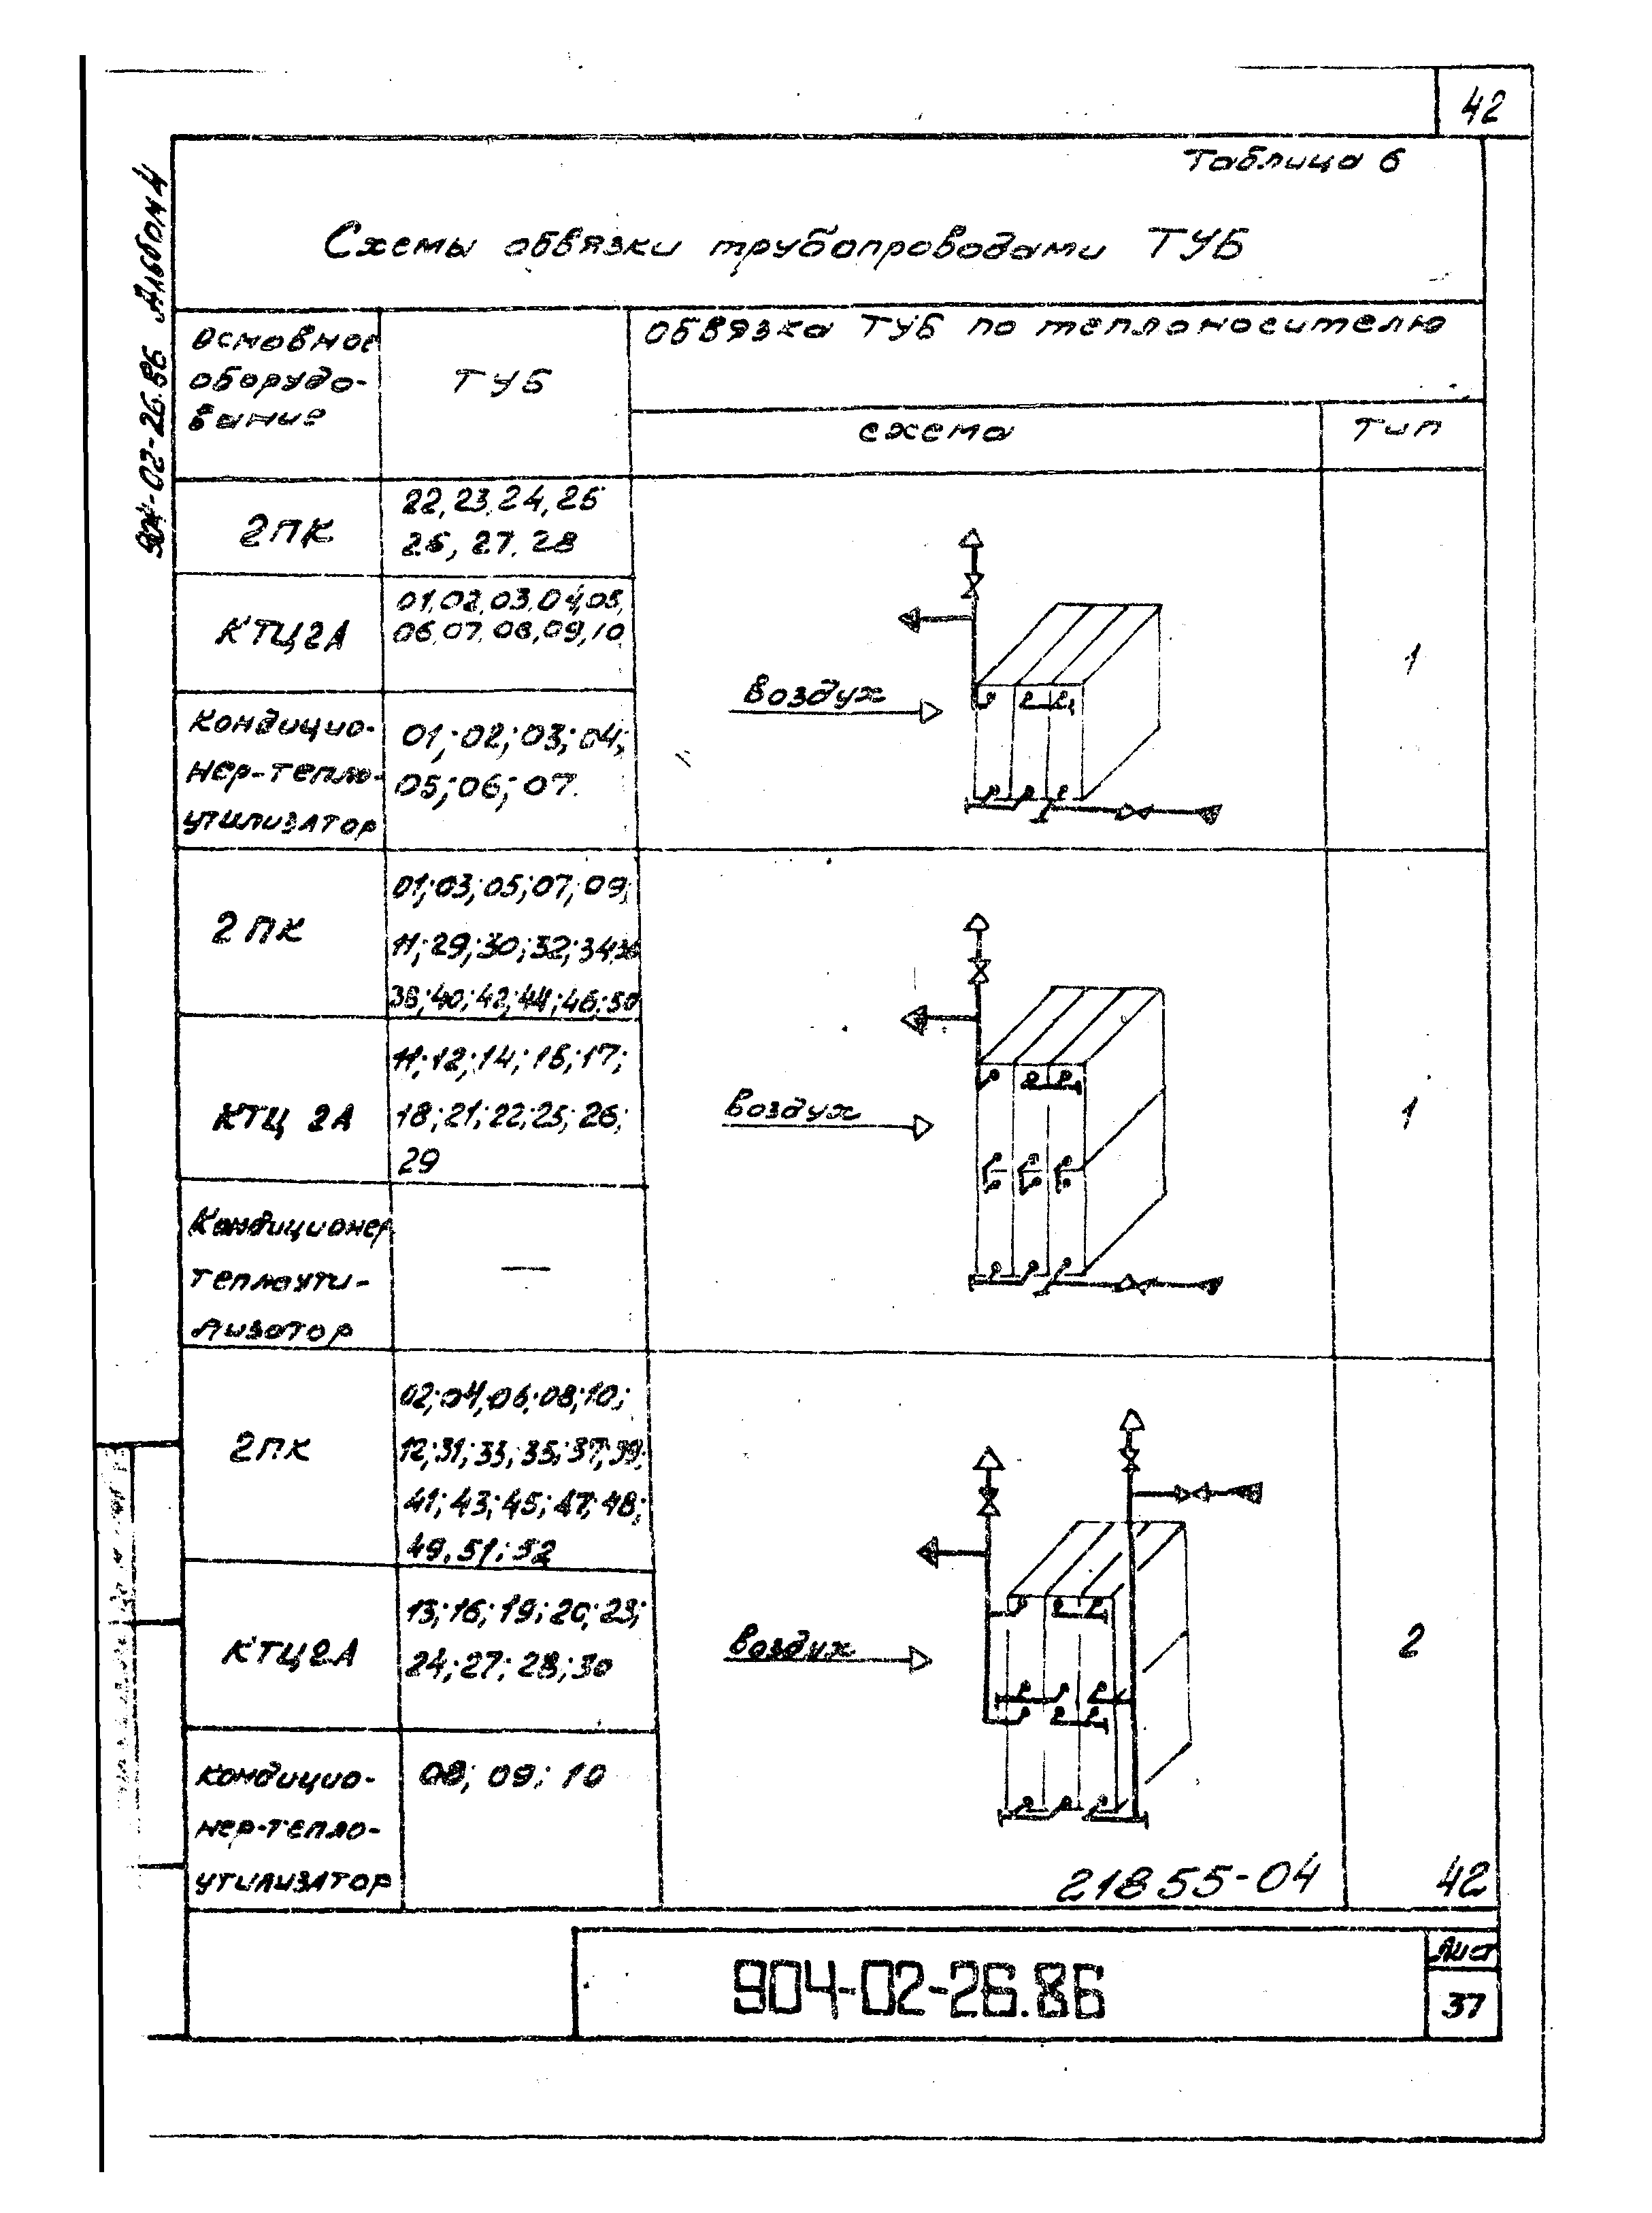 42
Таблица 6
904-02-26.86 Альбом 4
Схемы обвязки трубопроводами ТУБ
Основное
оборудо-
вание
ТУБ
Обвязка ТУБ по теплоносителю
схема
тип
2ПК
22, 23, 24, 25
26, 27, 28
КТЦ2А
01, 02, 03, 04, 05,
06, 07, 08, 09, 10
Кондицио-
нер-тепло-
утилизатор
01; 02; 03; 04;
05; 06; 07.
Воздух
1
2ПК
01; 03; 05; 07; 09;
11; 29; 30; 32; 34; 36
38; 40; 42; 44; 46; 50
КТЦ 2А
11; 12; 14; 15; 17;
18; 21; 22; 25; 26;
29
Кондиционер
теплоути-
лизатор
—
Воздух
1
2ПК
02; 04; 06; 08; 10;
12; 31; 33; 35; 37; 39;
41; 43; 45; 47; 48;
49; 51; 52
КТЦ2А
13; 16; 19; 20; 23;
24; 27; 28; 30
Кондицио-
нер-тепло-
утилизатор
08; 09; 10
Воздух
2
21855-04
42
904-02-26.86
Лист
37